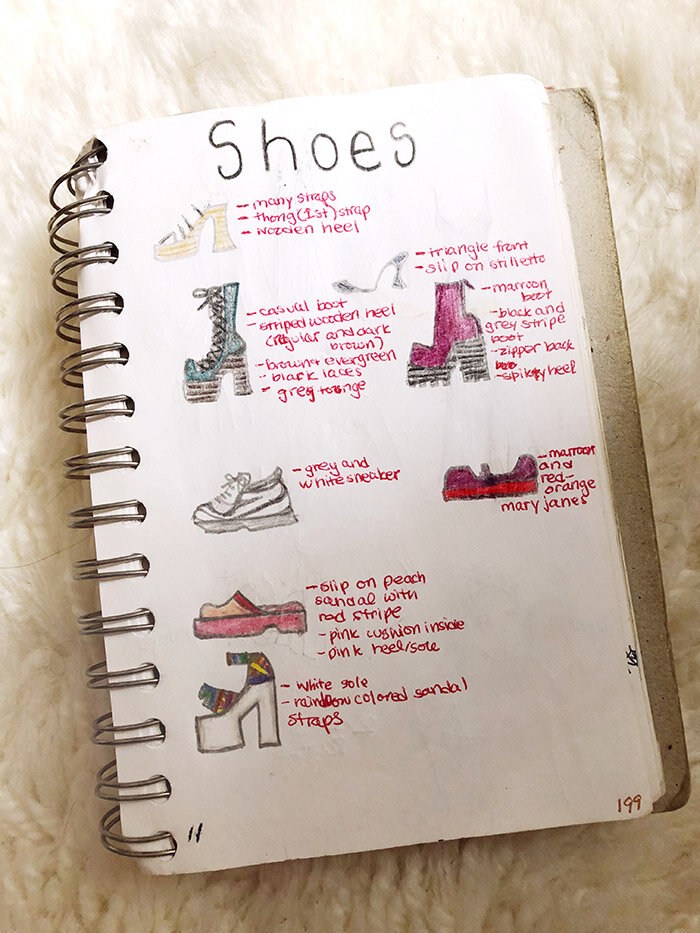 Shoes
- many straps
- thong (1st) strap
- wooden heel
- triangle front
- slip on stilletto
- casual boot
- striped wooden heel
(regular and dark
brown)
- brown + evergreen
- black laces
- grey
- marroon
boot
- black and
grey stripe
boot
- zipper back
- spikty heel
- grey and
white sneaker
- marroon
and
red-
orange
mary janes
- slip on peach
sandal with
red stripe
- pink cushion inside
- pink heel/sole
- white sole
- rainbow colored sandal
straps
11
199